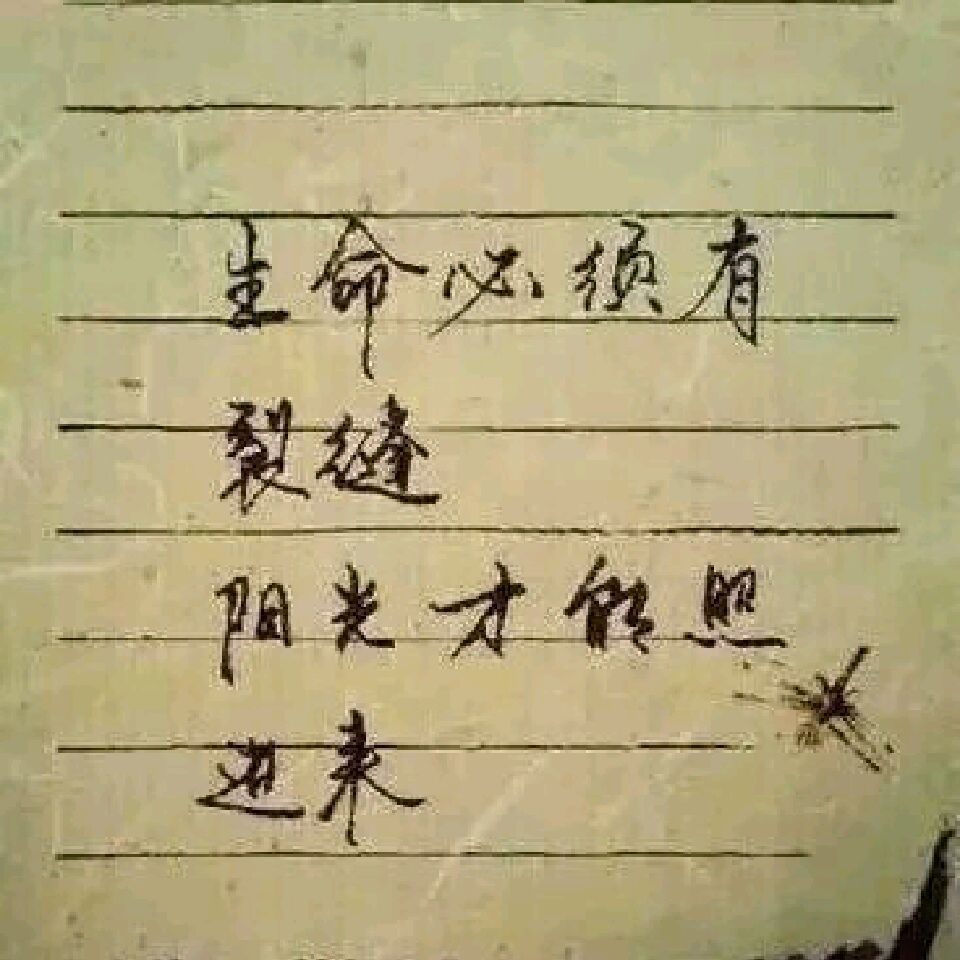 生命必须有
裂缝
阳光才能照
进来